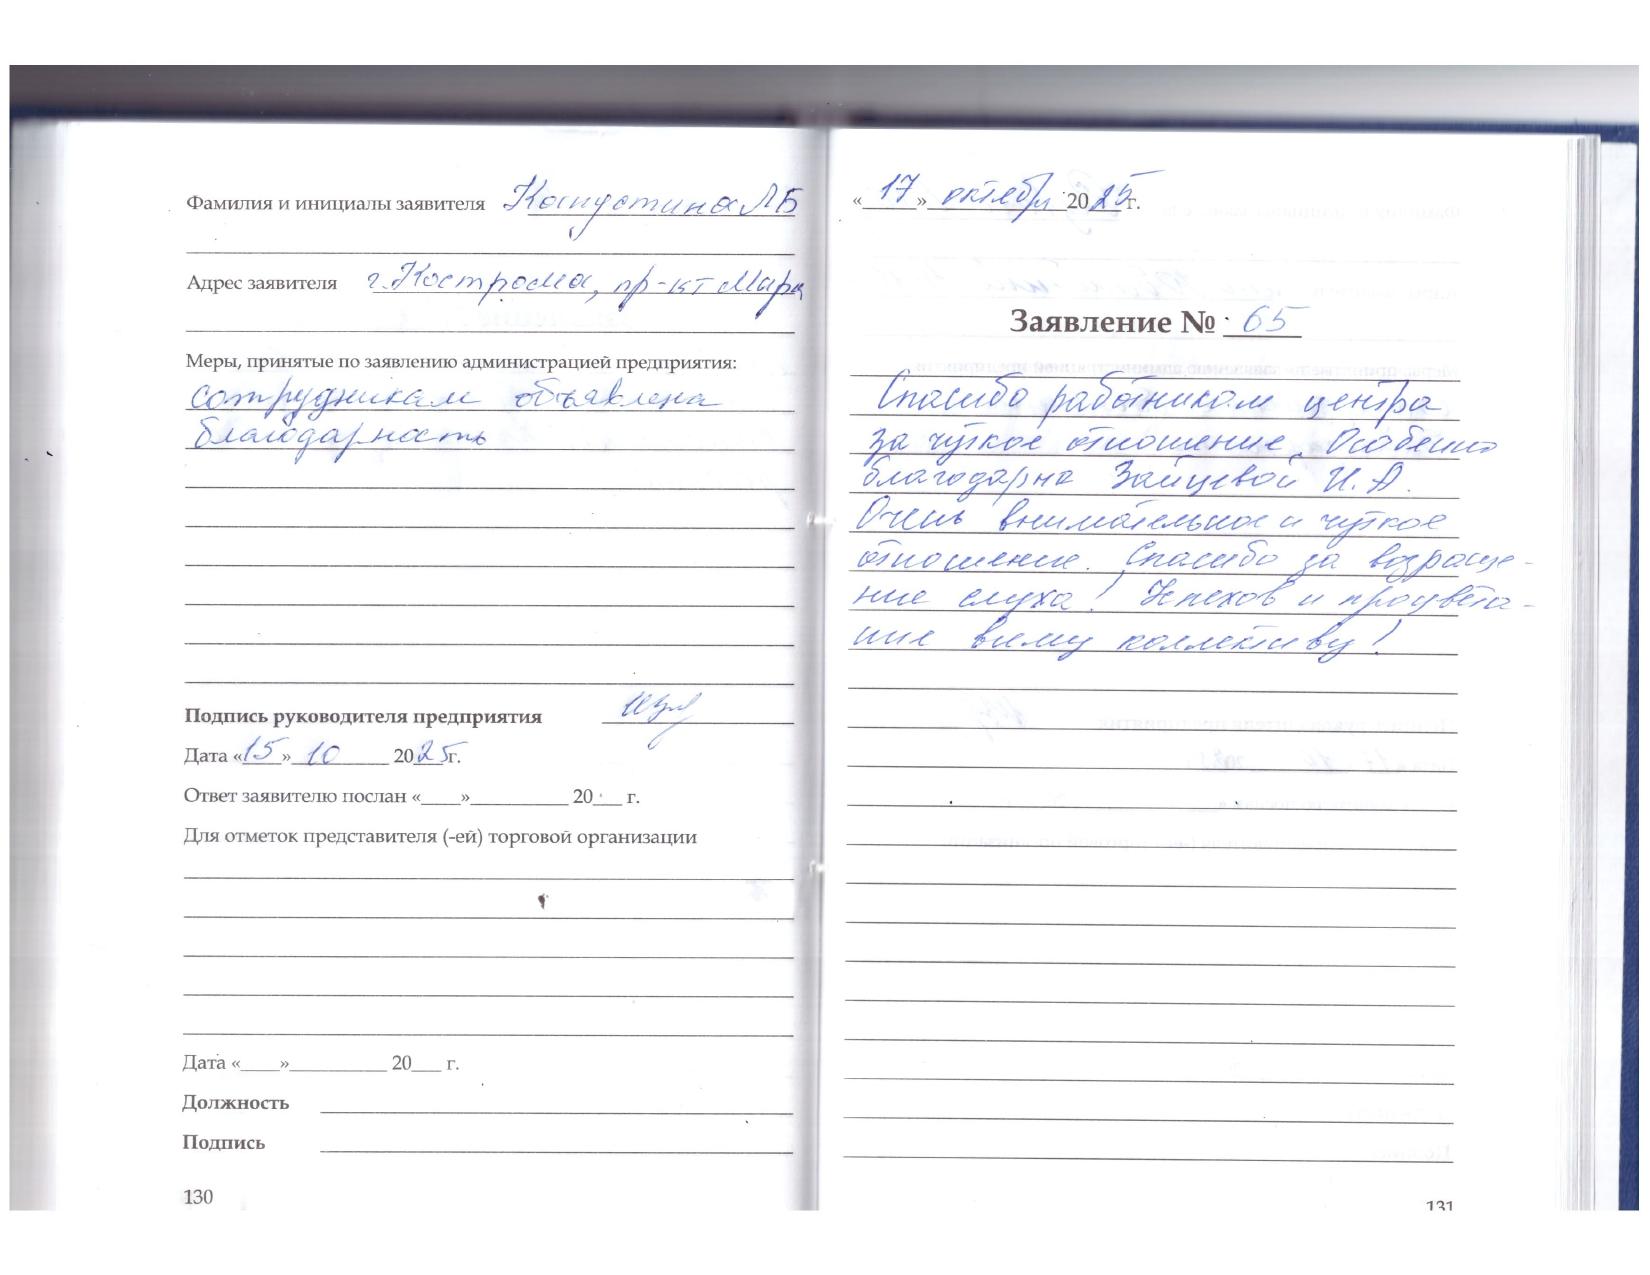 Фамилия и инициалы заявителя Капустина Л Б
Адрес заявителя г. Кострома, пр-кт Мира
Меры, принятые по заявлению администрацией предприятия:
сотрудникам объявлена
благодарность
Подпись руководителя предприятия
Дата «15» 10 2025г.
Ответ заявителю послан «____»__________ 20___ г.
Для отметок представителя (-ей) торговой организации
Дата «____»__________ 20___ г.
Должность
Подпись
130
«17» октября 2025г.
Заявление № 65
Спасибо работникам центра
за чуткое отношение. Особенно
благодарна Зайцевой И. А.
Очень внимательное и чуткое
отношение. Спасибо за возраще-
ние слуха! Успехов и процвета-
ние всему коллективу!
131